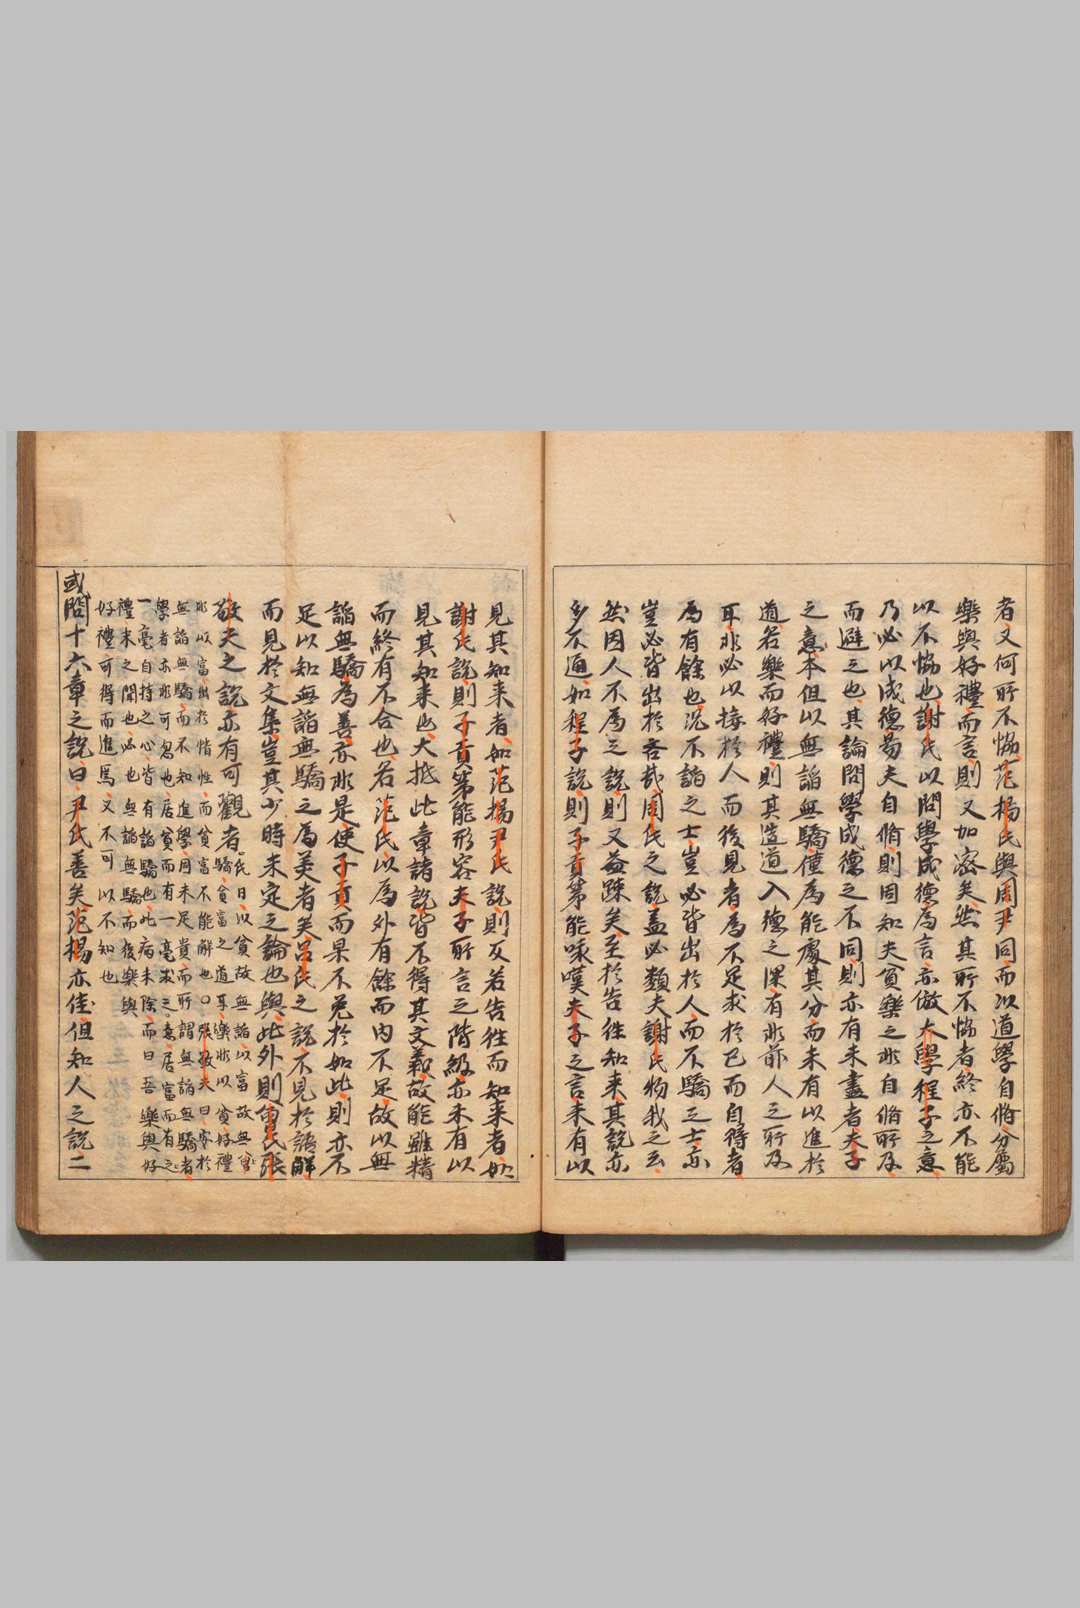 者又何所不愶范楊氏與周尹同而以道學自脩分屬
樂與好禮而言則又加密矣然其所不愶者終亦不能
以不愶也謝氏以問學成德爲言亦倣大學程子之意
乃必以成德易夫自脩則固知夫貧樂之非自脩所及
而避之也其論問學成德之不同則亦有未盡者夫子
之意本但以無諂無驕僅爲能處其分而未有以進於
道若樂而好禮則其造道入德之深有非前人之所及
耳非必以接於人而後見者爲不足求於己而自得者
爲有餘也况不諂之士豈必皆出於人而不驕之士亦
豈必皆出於吝哉周氏之說盖必類夫謝氏物我之云
然因人不爲之說則又益踈矣至於告徃知来其說亦
多不通如程子說則子貢第能咏嘆夫子之言未有以
見其知来者如范楊尹氏說則反若告徃而知来者如
謝氏說則子貢第能形容夫子所言之階級亦未有以
見其知来也大抵此章諸說皆不得其文義故能雖精
而終有不合也若范氏以爲外有餘而内不足故以無
諂無驕爲善亦非是使子貢而果不免於如此則亦不
足以知無諂無驕之爲美者矣呂氏之說不見於語解
而見於文集豈其少時未定之論也與此外則曾氏張
敬夫之說亦有可觀者
曾氏曰以貧故無諂以富故無
驕貧富之道耳樂非以貧好禮
非以富出於情性而貧富不能解也○張敬夫曰寡於
無諂無驕而不知進學固未足貴而所謂無諂無驕者
學者亦非可忽也居貧而有一毫求之意居富而有之
一毫自持之心皆有諂驕也此病未除而曰吾樂與好
禮未之聞也必也無諂無驕而後樂與
好禮可得而進焉又不可以不知也
或問十六章之說曰尹氏善矣范楊亦佳但知人之說二